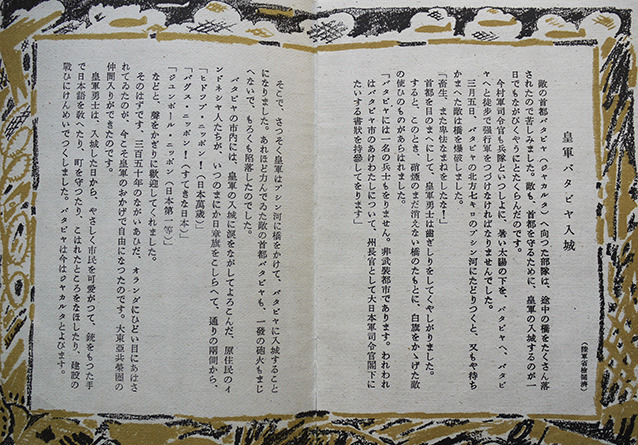 皇軍バタビヤ入城
（陸軍省檢閲濟）
敵の首都バタビヤ（ジャカルタ）へ向つた部隊は、途中の橋をたくさん落
されたので苦しみました。敵も、首都を守るために、皇軍の入城するのが一
日でもながびくやうにとたくらんだのです。
今村軍司令官も兵隊といつしよに、暑い太陽の下を、バタビヤへ、バタビ
ヤへと徒歩で强行軍をつづけなければなりませんでした。
三月五日、バタビヤの北方七キロのプシン河にたどりつくと、又もや待ち
かまへた敵は橋を爆破しました。
「畜生、また卑怯なまねをしたな！」
首都を目のまへにして、皇軍勇士は齒ぎしりをしてくやしがりました。
すると、このとき、硝煙のまだ消えない橋のたもとに、白旗をかゝげた敵
の使ひのものがあらはれました。
「バタビヤには一名の兵士もをりません。非武裝都市であります。われわれ
はバタビヤ市のあけわたしについて、州長官として大日本軍司令官閣下に
たいする書狀を持參してをります」
そこで、さつそく皇軍はプシン河に橋をかけて、バタビヤに入城すること
になりました。あれほど力んでゐた敵の首都バタビヤも、一發の砲火もまじ
へないで、もろくも陷落したのでした。
バタビヤの市内には、皇軍の入城に涙をながしてよろこんだ、原住民のイ
ンドネシヤ人たちが、いつのまにか日章旗をこしらへて、通りの兩側から、
「ヒドップ・ニッポン！（日本萬歲）」
「バグス・ニッポン！（すてきな日本）」
「ジュンポール・ニッポン（日本第一等）」
などと、聲をかぎりに歡迎してくれました。
そのはずです。三百五十年のながいあひだ、オランダにひどい目にあはさ
れてゐたのが、今こそ皇軍のおかげで自由になつたのです。大東亞共榮圈の
仲間入りができたのです。
皇軍勇士は、入城した日から、やさしく市民を可愛がつて、銃をもつた手
で日本語を敎へたり、町を守つたり、こはれたところをなほしたり、建設の
戰ひにけんめいでつくしました。バタビヤは今はジャカルタとよびます。